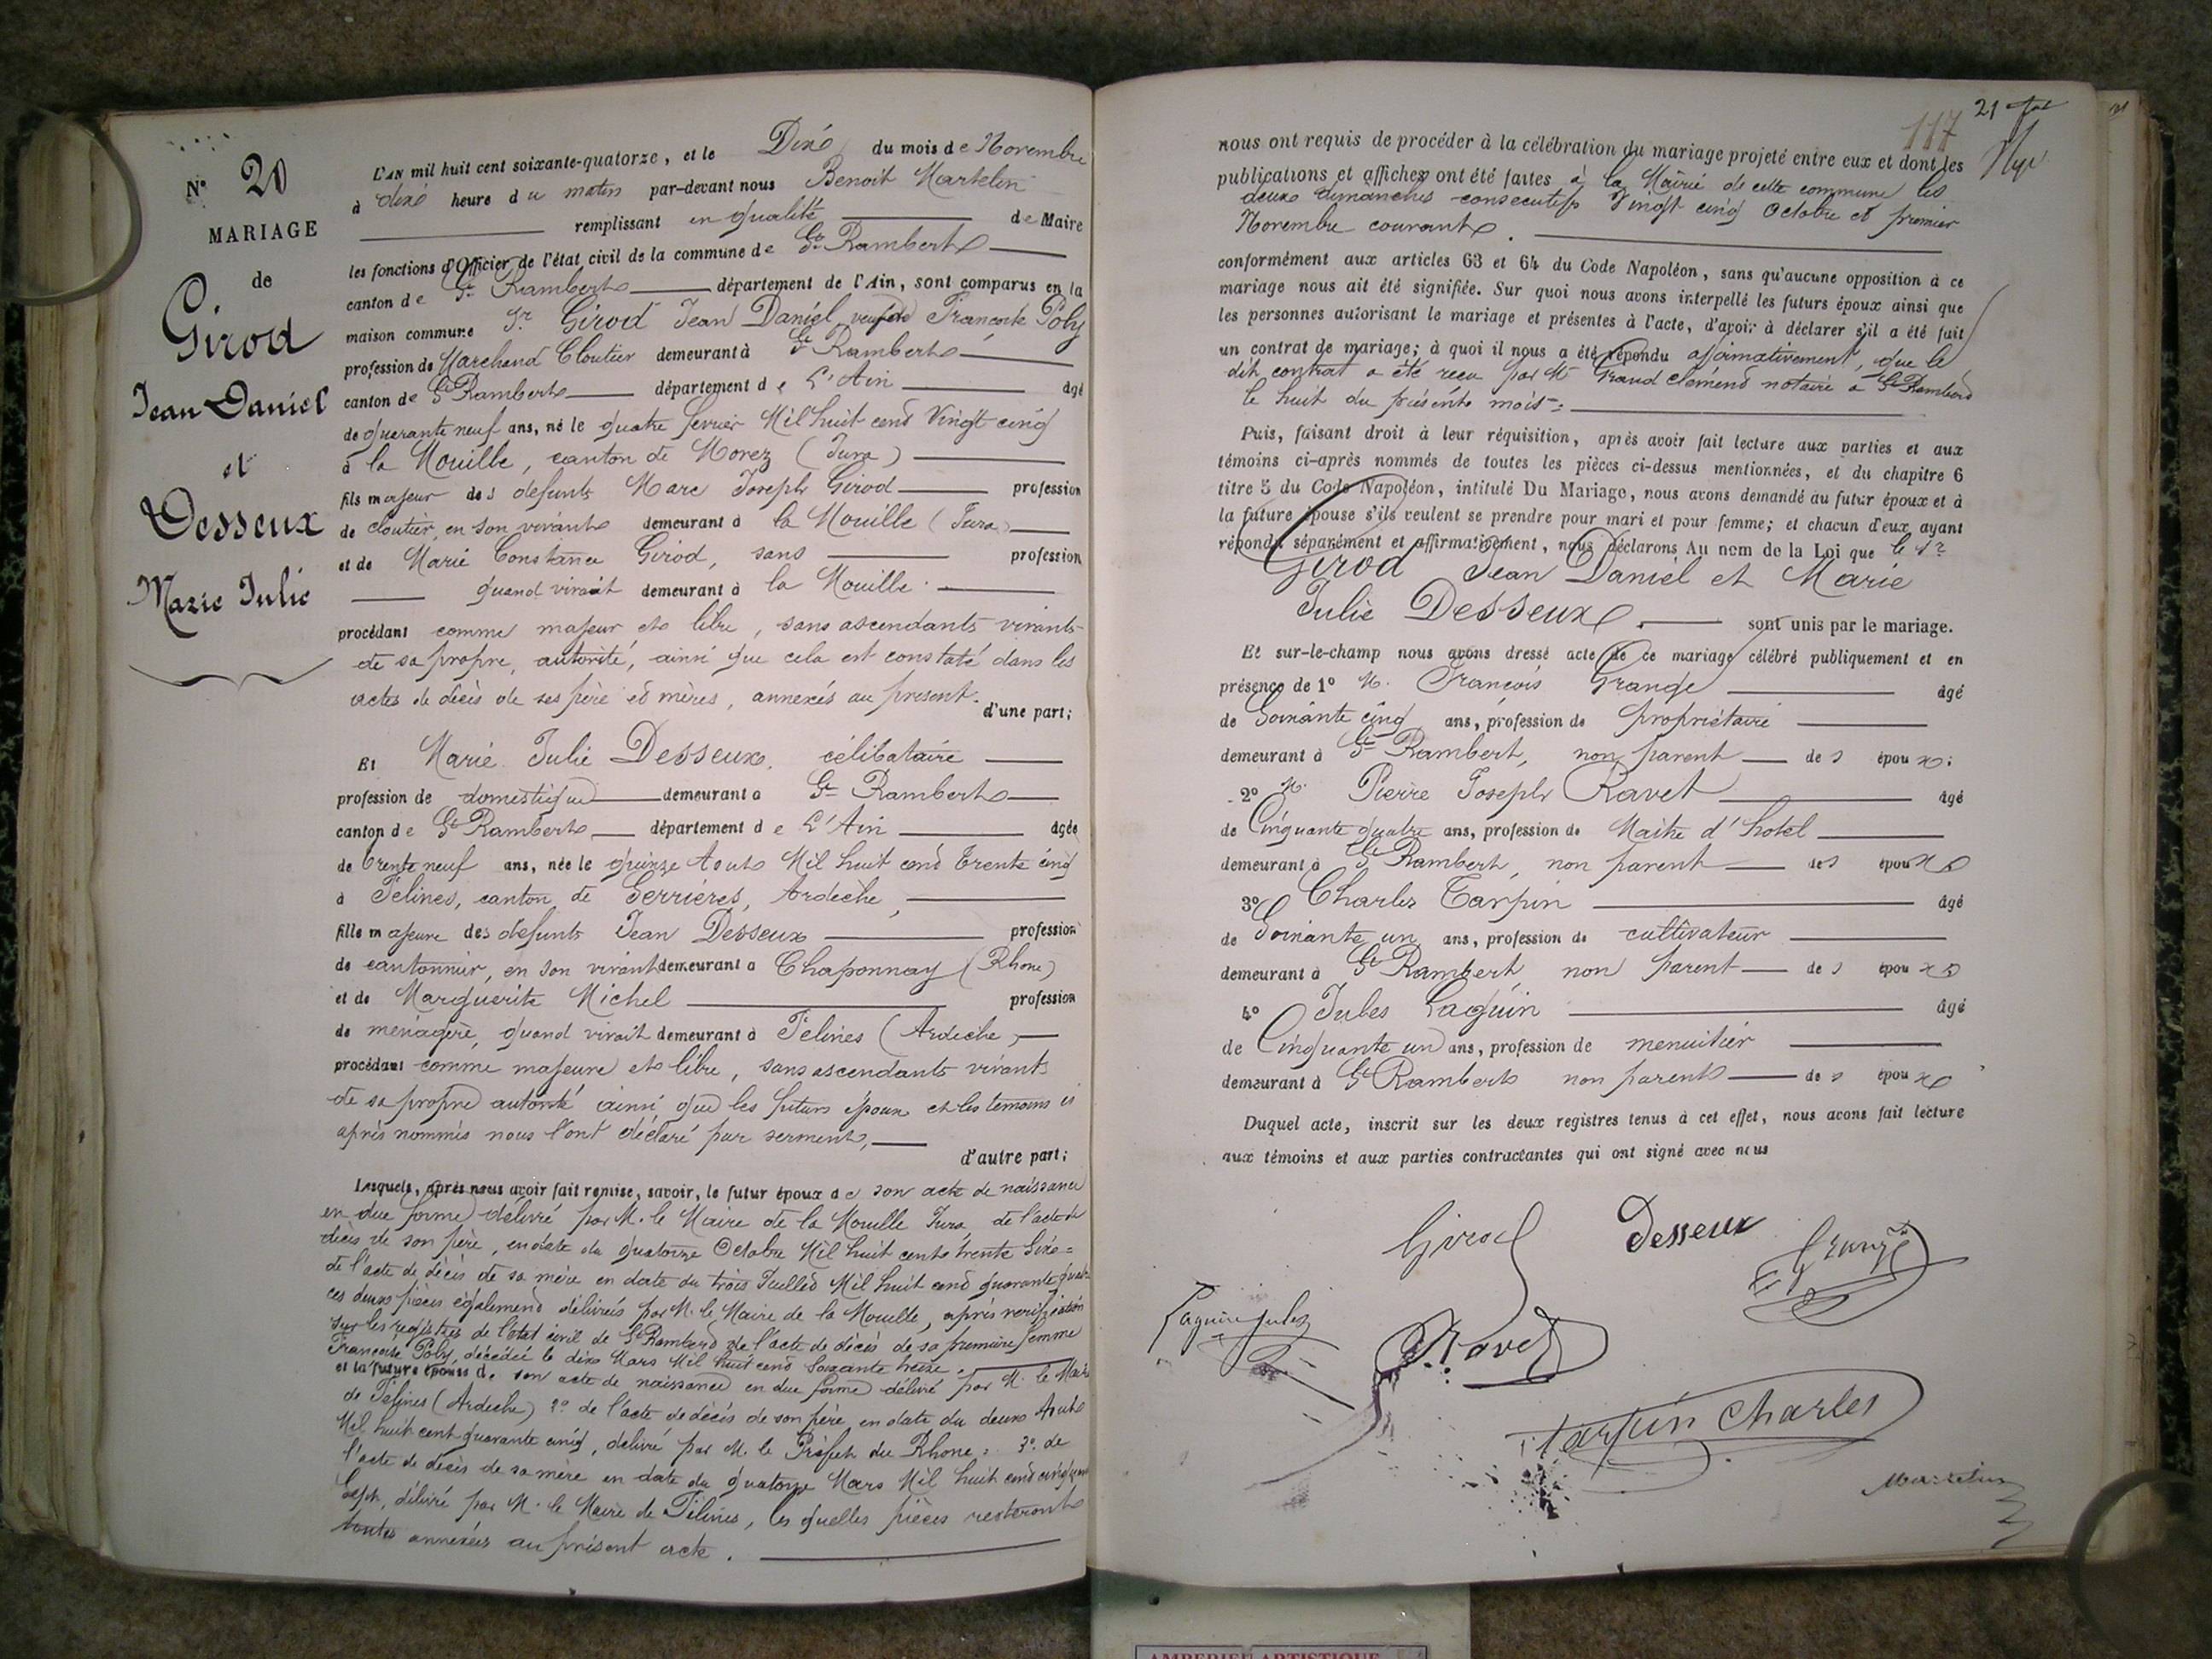 N° 20
MARIAGE
de
Girod
Jean Daniel
et
Desseux
Marie Julie
L'AN mil huit cent soixante-quatorze, et le Dix du mois de Novembre
à dix heure du matin par-devant nous Benoit Marselin
remplissant en qualité de Maire
les fonctions d'Officier de l'état civil de la commune de St Rambert
canton de St Rambert département de l'Ain, sont comparus en la
maison commune Sr Girod Jean Daniel, veuf de Françoise Poly
profession de Marchand Cloutier demeurant à St Rambert
canton de St Rambert département de L'Ain âgé
de quarante neuf ans, né le quatre fevrier Mil huit cent Vingt cinq
à la Mouille, canton de Morez (Jura)
fils majeur des defunts Marc Joseph Girod profession
de cloutier, en son vivant demeurant à la Mouille (Jura)
et de Marie Constance Girod, sans profession
quand vivait demeurant à la Mouille.
procédant comme majeur et libre, sans ascendants vivants
de sa propre autorité, ainsi que cela est constaté dans les
actes de décès de ses père et mères, annexés au present. d'une part;
Et Marie Julie Desseux, célibataire
profession de domestique demeurant à St Rambert
canton de St Rambert département de L'Ain âgée
de trente neuf ans, née le quinze Aout Mil huit cent trente cinq
à Félines, canton de Serrières, Ardèche,
fille majeure des defunts Jean Desseux profession
de cantonnier, en son vivant demeurant à Chaponnay (Rhone)
et de Marguerite Michel profession
de ménagère, quand vivait demeurant à Félines (Ardèche)
procédant comme majeure et libre, sans ascendants vivants
de sa propre autorité ainsi que les futurs époux et les témoins ci
après nommés nous l'ont déclaré par serment,
d'autre part;
Lesquels, après nous avoir fait remise, savoir, le futur époux de son acte de naissance
en due forme délivré par M. le Maire de la Mouille Jura, de l'acte de
décès de son père, en date du quatorze Octobre Mil huit cent trente Six =
de l'acte de décès de sa mère en date du trois Juillet Mil huit cent quarante quatre
ces deux pièces également délivrées par M. le Maire de la Mouille, après verification
sur les registres de l'état civil de St Rambert de l'acte de décès de sa première femme
Françoise Poly, décédée le dix Mars Mil huit cent Soixante treize.
et la future épouse de son acte de naissance en due forme délivré par M. le Maire
de Félines (Ardèche) 2° de l'acte de décès de son père, en date du deux Aout
Mil huit cent quarante cinq, délivré par M. le Préfet du Rhone: 3° de
l'acte de décès de sa mère en date du quatorze Mars Mil huit cent cinquante
Sept, délivré par M. le Maire de Félines, les quelles pièces resteront
toutes annexées au présent acte.
117
21
nous ont requis de procéder à la célébration du mariage projeté entre eux et dont les
publications et affiches ont été faites à la Mairie de cette commune les
deux dimanches consecutifs Vingt cinq Octobre et premier
Novembre courant.
conformément aux articles 63 et 64 du Code Napoléon, sans qu'aucune opposition à ce
mariage nous ait été signifiée. Sur quoi nous avons interpellé les futurs époux ainsi que
les personnes autorisant le mariage et présentes à l'acte, d'avoir à déclarer s'il a été fait
un contrat de mariage; à quoi il nous a été répondu affirmativement, que le
dit contrat a été reçu par Me Grand clément notaire à St Rambert
le huit du présent mois:
Puis, faisant droit à leur réquisition, après avoir fait lecture aux parties et aux
témoins ci-après nommés de toutes les pièces ci-dessus mentionnées, et du chapitre 6
titre 5 du Code Napoléon, intitulé Du Mariage, nous avons demandé au futur époux et à
la future épouse s'ils veulent se prendre pour mari et pour femme; et chacun d'eux ayant
répondu séparément et affirmativement, nous déclarons Au nom de la Loi que le Sr
Girod Jean Daniel et Marie
Julie Desseux sont unis par le mariage.
Et sur-le-champ nous avons dressé acte de ce mariage célébré publiquement et en
présence de 1° M. François Grange âgé
de Soixante cinq ans, profession de propriétaire
demeurant à St Rambert, non parent des époux;
2° M. Pierre Joseph Ravet âgé
de Cinquante quatre ans, profession de Maitre d'hotel
demeurant à St Rambert, non parent des époux
3° Charles Tarpin âgé
de Soixante un ans, profession de cultivateur
demeurant à St Rambert non parent des époux
4° Jules Laguin âgé
de Cinquante un ans, profession de menuisier
demeurant à St Rambert non parent des époux
Duquel acte, inscrit sur les deux registres tenus à cet effet, nous avons fait lecture
aux témoins et aux parties contractantes qui ont signé avec nous
Girod Desseux Grange
Laguin Jules
Ravet
tarpin Charles
Marselin
AMBERIEU ARTISTIQUE